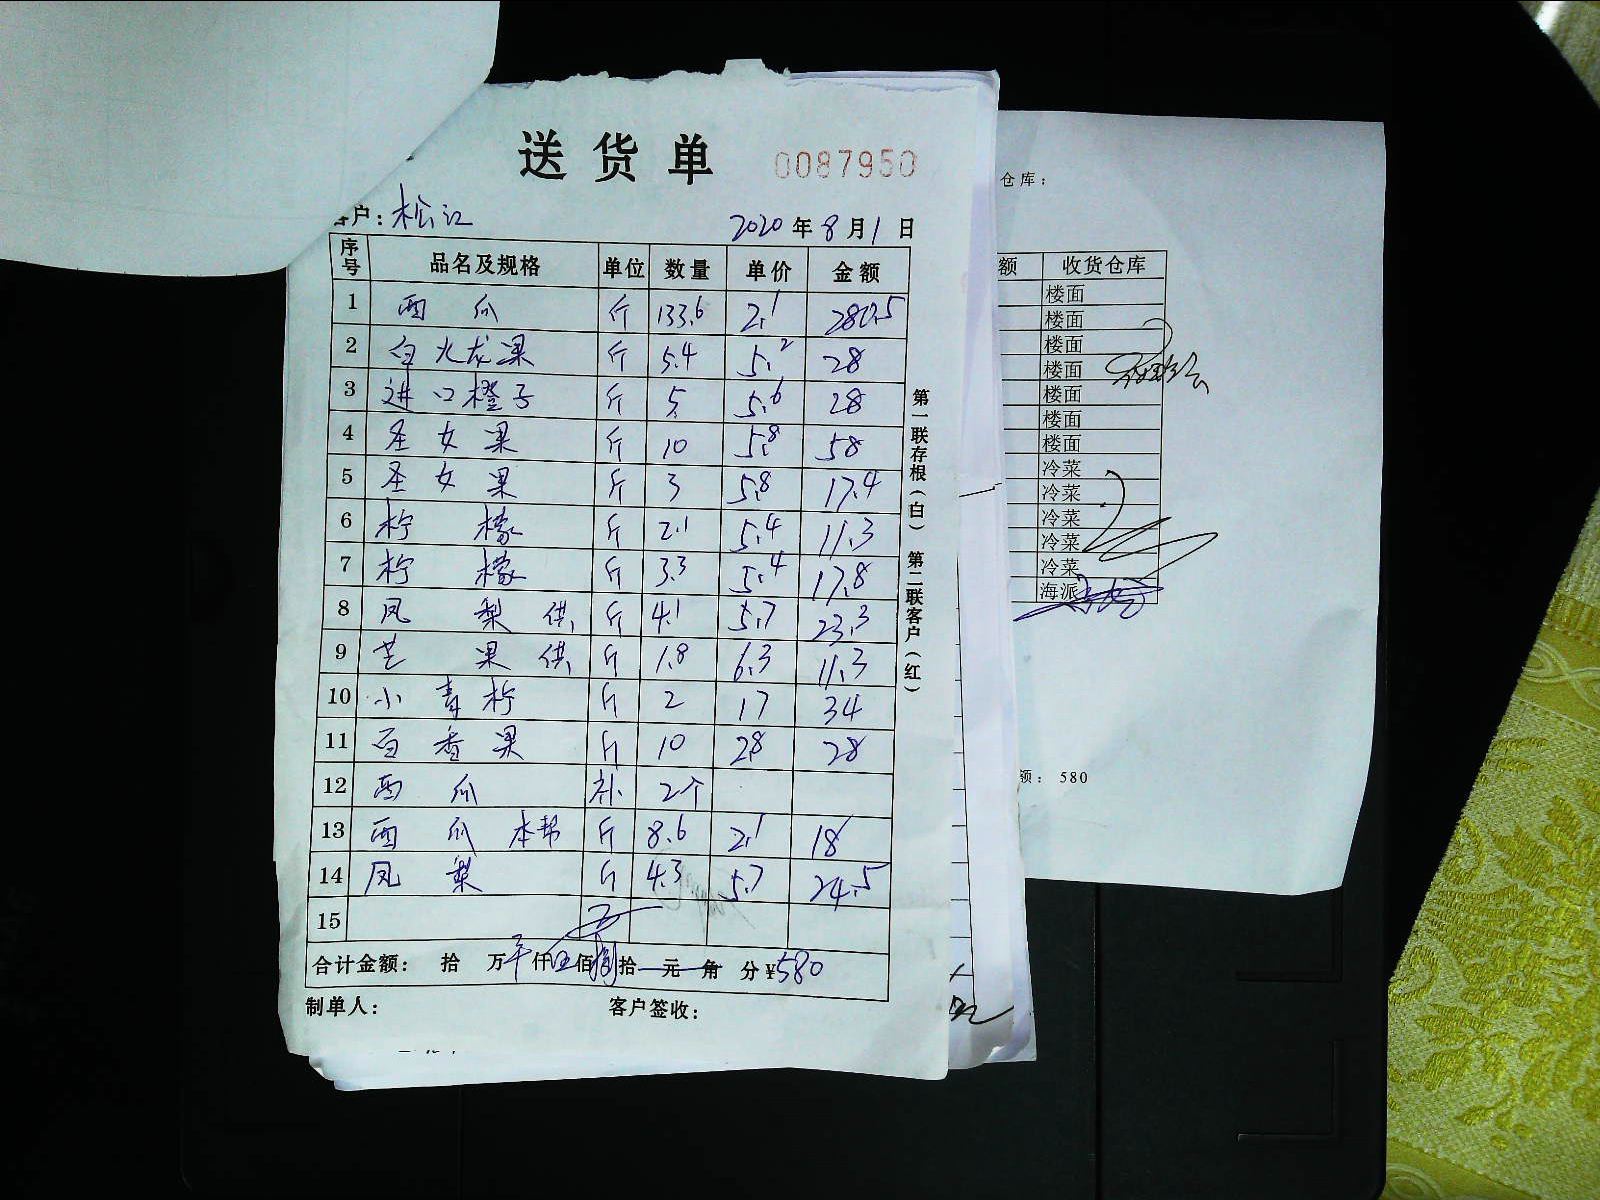 送货单 0087950
客户：松江 2020年8月1日
序号 品名及规格 单位 数量 单价 金额
1 西瓜 斤 133.6 2.1 280.5
2 白火龙果 斤 5.4 5.2 28
3 进口橙子 斤 5 5.6 28
4 圣女果 斤 10 5.8 58
5 圣女果 斤 3 5.8 17.4
6 柠檬 斤 2.1 5.4 11.3
7 柠檬 斤 3.3 5.4 17.8
8 凤梨 供 斤 4.1 5.7 23.3
9 芒果 供 斤 1.8 6.3 11.3
10 小青柠 斤 2 17 34
11 百香果 斤 10 2.8 28
12 西瓜 补 2个
13 西瓜 本帮 斤 8.6 2.1 18
14 凤梨 斤 4.3 5.7 24.5
15
合计金额： 拾 万 仟伍佰捌拾 元 角 分￥580
制单人： 客户签收：
第一联存根（白） 第二联客户（红）
仓库：
额 收货仓库
楼面
楼面
楼面
楼面
楼面
楼面
楼面
冷菜
冷菜
冷菜
冷菜
冷菜
海派
额：580